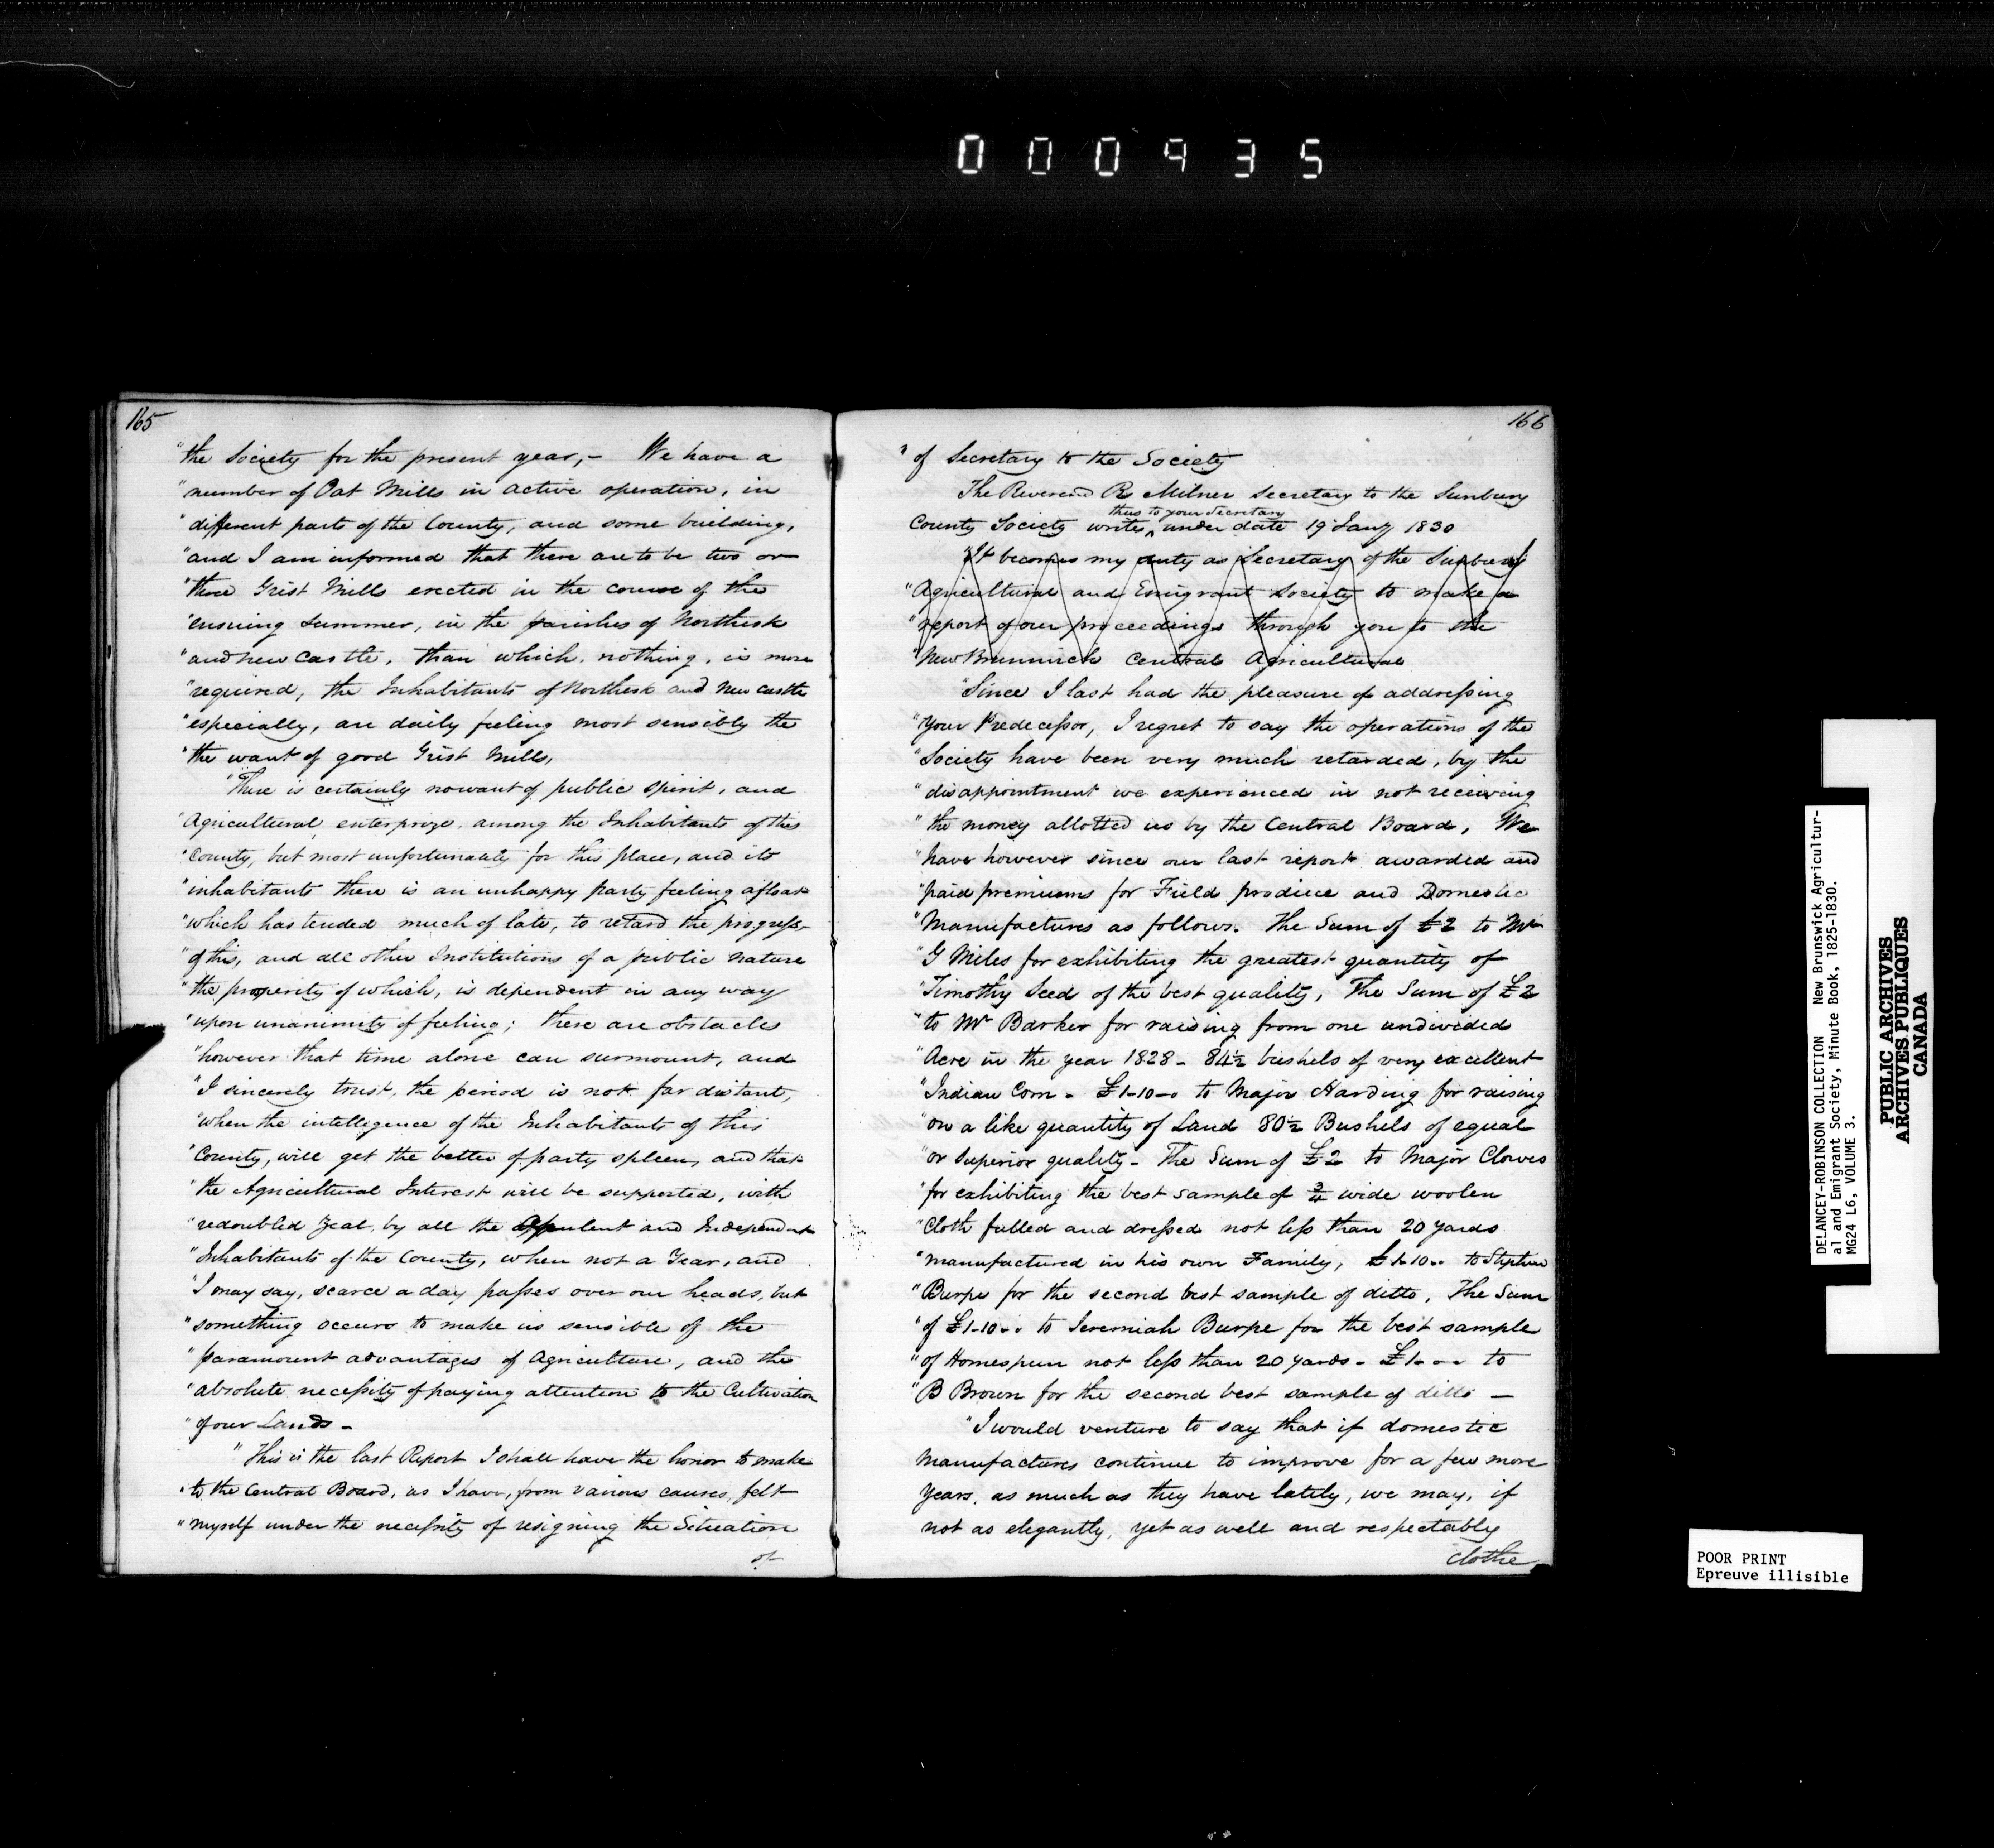 000935
165
"the Society for the present year,- We have a
"number of Oat Mills in active operation, in
"different parts of the County, and some building,
"and I am informed that there are to be two or
"three Grist Mills erected in the course of the
"ensuing Summer, in the parishes of Northesk
"and new castle, than which, nothing, is more
"required, the Inhabitants of Northesk and New castle
"especially, are daily feeling most sensibly the
"the want of good Grist Mills,
"There is certainly no want of public spirit, and
"Agricultural enterprize, among the Inhabitants of this
"County, but most unfortunately for this place, and its
"inhabitants there is an unhappy party feeling afloat
"which has tended much of late, to retard the progress
"of this, and all other Institutions of a public nature
"the prosperity of which, is dependent in any way
"upon unanimity of feeling; these are obstacles
"however that time alone can surmount, and
"I sincerely trust, the period is not far distant,
"when the intelligence of the Inhabitants of this
"County, will get the better of party spleen, and that
"the Agricultural Interest will be supported, with
"redoubled Zeal, by all the opulent and Independent
"Inhabitants of the County, when not a Year, and
"I may say, scarce a day passes over our heads, but
"something occurs to make us sensible of the
"paramount advantages of Agriculture, and the
"absolute necessity of paying attention to the Cultivation
"of our Lands -
"This is the last Report I shall have the honor to make
"to the Central Board, as I have, from various causes, felt
"myself under the necessity of resigning the Situation
of
166
"of Secretary to the Society
The Reverend R Milner Secretary to the Sunbury
thus to your Secretary
County Society writes ^ under date 19 Jany 1830
"It becomes my duty as Secretary of the Sunbury
"Agricultural and Emigrant Society to make a
"report of our proceedings through you to the
"New Brunswick Central Agricultural
"Since I last had the pleasure of addressing
"your Predecessor, I regret to say the operations of the
"Society have been very much retarded, by the
"disappointment we experienced in not receiving
"the money allotted us by the Central Board, We
"have however since our last report awarded and
"paid premiums for Field produce and Domestic
"Manufactures as follows. The Sum of £2 to Mr
"G Miles for exhibiting the greatest quantity of
"Timothy Seed of the best quality, The Sum of £2
"to Mr Barker for raising from one undivided
"Acre in the year 1828 - 84½ bushels of very excellent
"Indian Corn - £1-10-0 to Major Harding for raising
"on a like quantity of Land 80½ Bushels of equal
"or Superior quality - The Sum of £2 to Major Clowes
"for exhibiting the best sample of ¾ wide woolen
"Cloth fulled and dressed not less than 20 yards
"manufactured in his own Family, £1-10.. to Stephen
"Burpe for the second best sample of ditto, The Sum
"of £1-10.. to Jeremiah Burpe for the best sample
"of Homespun not less than 20 yards - £1-.- to
"B Brown for the second best sample of ditto —
"I would venture to say that if domestic
manufactures continue to improve for a few more
years, as much as they have lately, we may, if
not as elegantly, yet as well and respectably
clothe
DELANCEY-ROBINSON COLLECTION New Brunswick Agricultur-
al and Emigrant Society, Minute Book, 1825-1830.
MG24 L6, VOLUME 3.
PUBLIC ARCHIVES
ARCHIVES PUBLIQUES
CANADA
POOR PRINT
Epreuve illisible